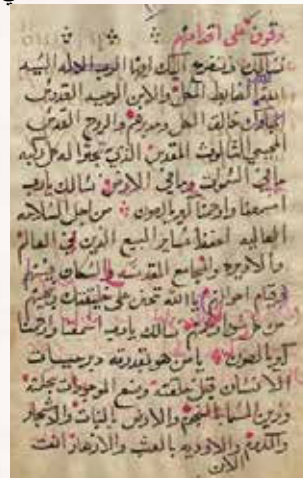 وقوف على اقدامهم
نسالك ونتضرع اليك ايها الرب الاله
الله الضابط الكل والابن الوحيد القدوس
خالق الكل ومدبرهم والروح القدس
المحيي الثالوث المقدس الذي تجثوا له كل ركبه
ما في السموات وما في الارض نسالك يارب
اسمعنا وارحمنا كورياليصون من اجل السلامه
العاليه احفظ ساير البيع الذين في العالم
والاديره والمجامع المقدسه والسكان
وقيام يا الله تحنن على خليقتك
من كل نسالك يارب اسمعنا وارحمنا
كورياليصون يا من هو بقدرته
الانسان قبل خلقته وصنع الموجودات بحكمة
وزين السما بالنجوم والارض بالنبات والاشجار
والكروم والاوديه بالعشب والازهار انت
الان